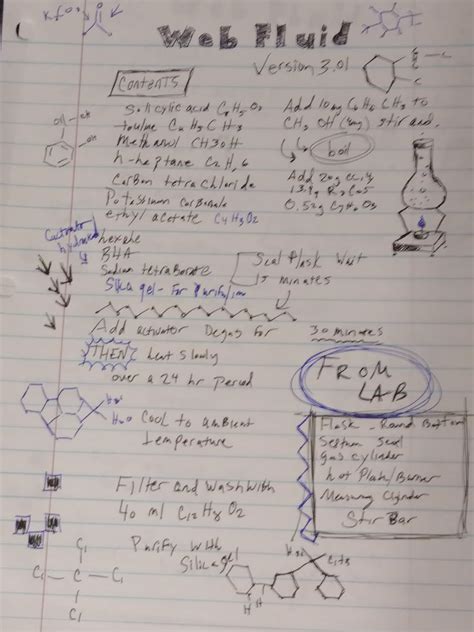 Web Fluid
Version 3.01
Contents
Salicylic acid C7H5O3
toulune C6H5CH3
Methanol CH3OH
n-heptane
Carbon tetrachloride
Potassium Carbonate
ethyl acetate C4H8O2
hexane
BHA
Sodium tetraborate
Silica gel - For Purifying
Add 10mg C6H5 CH3 to
CH3OH stir and
boil
Add 20g CCl4
Seal Flask Wait
15 minutes
Add activator Degas for 30 minutes
THEN heat Slowly
over a 24 hr Period
Cool to ambient
temperature
Filter and Wash With
40 ml
Purify With
Silica gel
FROM
LAB
Flask - Round Bottom
Septum Seal
gas cylinder
hot Plate/Burner
Measuring Cylinder
Stir Bar
Cl
Cl - C - Cl
Cl